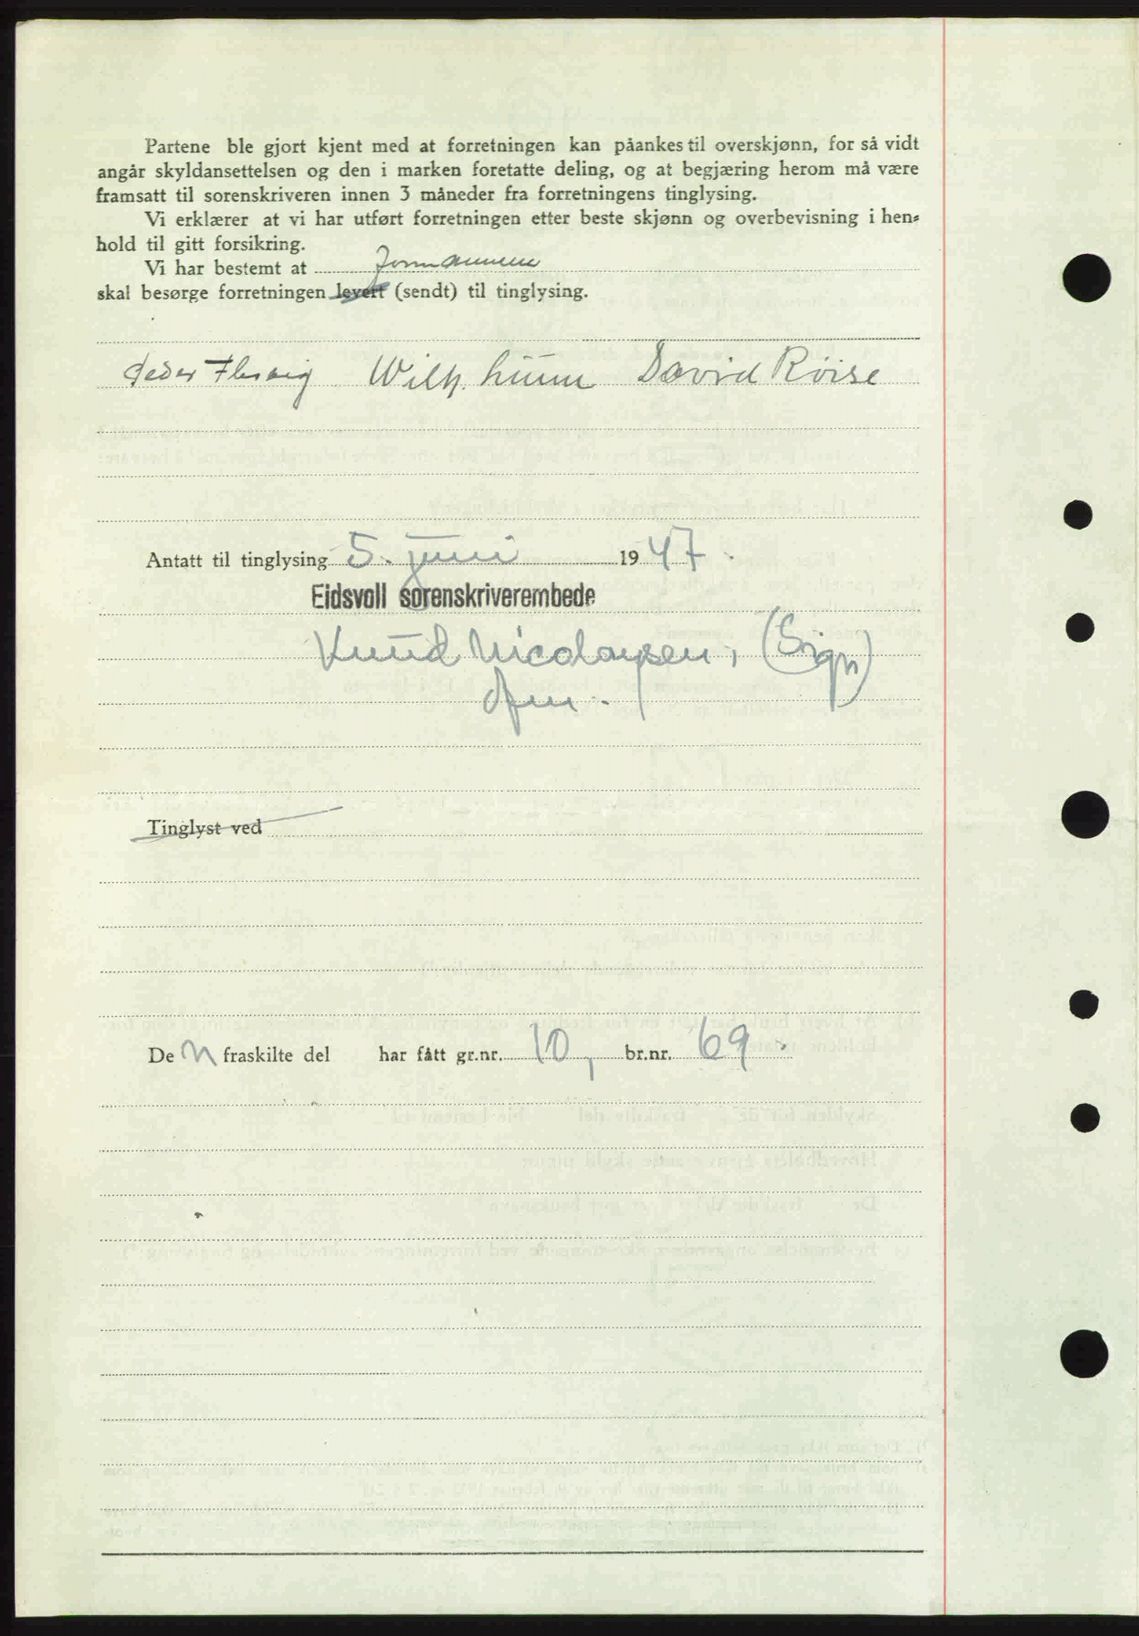 Partene ble gjort kjent med at forretningen kan påankes til overskjønn, for så vidt
angår skyldansettelsen og den i marken foretatte deling, og at begjæring herom må være
framsatt til sorenskriveren innen 3 måneder fra forretningens tinglysing.
Vi erklærer at vi har utført forretningen etter beste skjønn og overbevisning i hen-
hold til gitt forsikring.
Vi har bestemt at formannen
skal besørge forretningen levert (sendt) til tinglysing.
Peder Wilh. Linum David Røise
Antatt til tinglysing 5. juni 1947.
Eidsvoll sorenskriverembede
Knud Nicolaysen, (Sign)
Tinglyst ved
Den fraskilte del har fått gr.nr. 10, br.nr. 69.